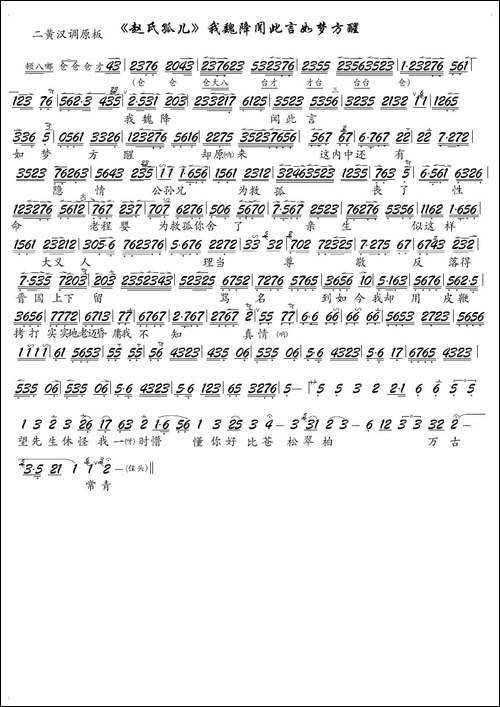 《赵氏孤儿》我魏降闻此言如梦方醒
二黄汉调原板
顿八哪 仓仓仓才 4̲3̲ | 2376 2043 | 237623 532376 | 2355 23563523 | 1·276 561 |
(仓 仓 仓大八 台才 才台 台台 仓)
123 76 | 562·3 435 | 2·531 203 | 233217 6125 | 3523 5356 | 3235 2132 | 11 1265 |
我 魏 降 闻 此 言
336 5 | 0561 3326 | 123276 5616 | 2275 35237656 | 567 67 | 6·767 22 | 22 7·272 |
如 梦 方 醒 却原(哟)来 这内中还 有
3523 76263 | 5643 235 | 11 1·656 | 1561 2312 | 32463523 | 1235 763 | 5 6·561 6326 |
隐 情 公孙兄 为救孤 丧 了 性
123276 5612 | 767 237 | 707 6276 | 506 5670 | 567·656 | 2523 | 76276 5356 | 1162 1·656 |
命 老程婴 为救孤你舍 了 亲 生 似这 样
1561 23212 | 305·6 | 762376 | 5·676 2272 | 33 32 | 702 72325 | 7·275 67 | 6743 232 |
大义 人 理当 尊 敬 反 落得
7·535 7203 | 203 2352343 | 52325 6752 | 7276 5765 | 3656 10 | 5·163 | 5676 562·5 |
晋国上下 留 骂 名 到如 今我却 用 皮鞭
3656 | 7772 6713 | 77 6767 | 2·767 2767 | 2 | 55 77 | 6·6 66 | 66 5653 2723 | 5656
拷打 实实地老迈昏 庸我 不 知 真情(哟)
1111 | 61 5653 | 55 55 | 56 4323 | 435 06 | 535 06 | 5·6 4323 | 5·6 17 | 6765 4323 |
535 06 | 535 06 | 5·6 4323 | 5·6 123 | 652 3276 | 5— | 5 5 3 2 2·1 6 6 5 5—
1 3 2 3 26 17 63 2 1·6 56 1 3 23 3 4— 3 31 2 3— 6 12 3—3 32 2—
望先生休怪我一(哟)时懵 懂你好比苍松翠柏 万古
3·5 21 1 1 2—(住头)‖
常青